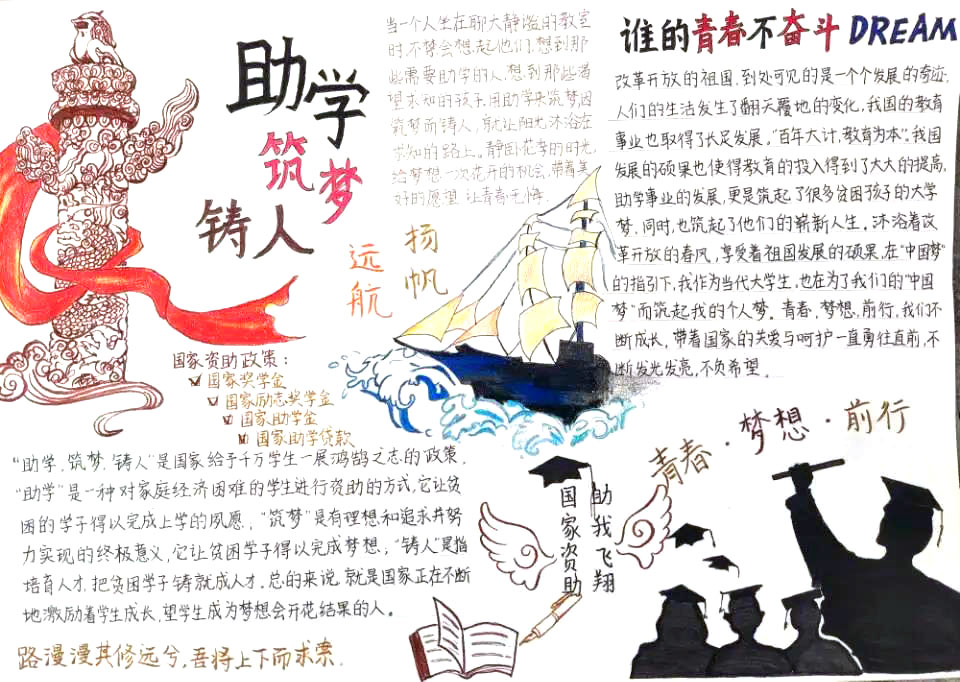 助学
筑梦
铸人
当一个人坐在聊大静谧的教室
时,不禁会想起他们,想到那
些需要助学的人,想到那些渴
望求知的孩子,用助学来筑梦,因
筑梦而铸人,就让阳光沐浴在
求知的路上。静卧花季的时光,
给梦想一次花开的机会,带着美
好的愿望,让青春无悔.
扬帆
远航
谁的青春不奋斗 DREAM
改革开放的祖国,到处可见的是一个个发展的奇迹,
人们的生活发生了翻天覆地的变化,我国的教育
事业也取得了长足发展。“百年大计,教育为本”.我国
发展的硕果也使得教育的投入得到了大大的提高,
助学事业的发展,更是筑起了很多贫困孩子的大学
梦,同时,也筑起了他们的崭新人生。沐浴着改
革开放的春风,享受着祖国发展的硕果,在“中国梦”
的指引下,我作为当代大学生,也在为了我们的“中国
梦”而筑起我的个人梦。青春,梦想,前行,我们不
断成长,带着国家的关爱与呵护一直勇往直前,不
断发光发亮,不负希望。
国家资助政策:
国家奖学金
国家励志奖学金
国家助学金
国家助学贷款
“助学,筑梦,铸人”是国家给予千万学生一展鸿鹄之志的政策,
“助学”是一种对家庭经济困难的学生进行资助的方式,它让贫
困的学子得以完成上学的夙愿;“筑梦”是有理想和追求并努
力实现的终极意义,它让贫困学子得以完成梦想;“铸人”是指
培育人才,把贫困学子铸就成人才.总的来说,就是国家正在不断
地激励着学生成长,望学生成为梦想会开花结果的人。
路漫漫其修远兮,吾将上下而求索.
国家资助
助我飞翔
青春·梦想·前行